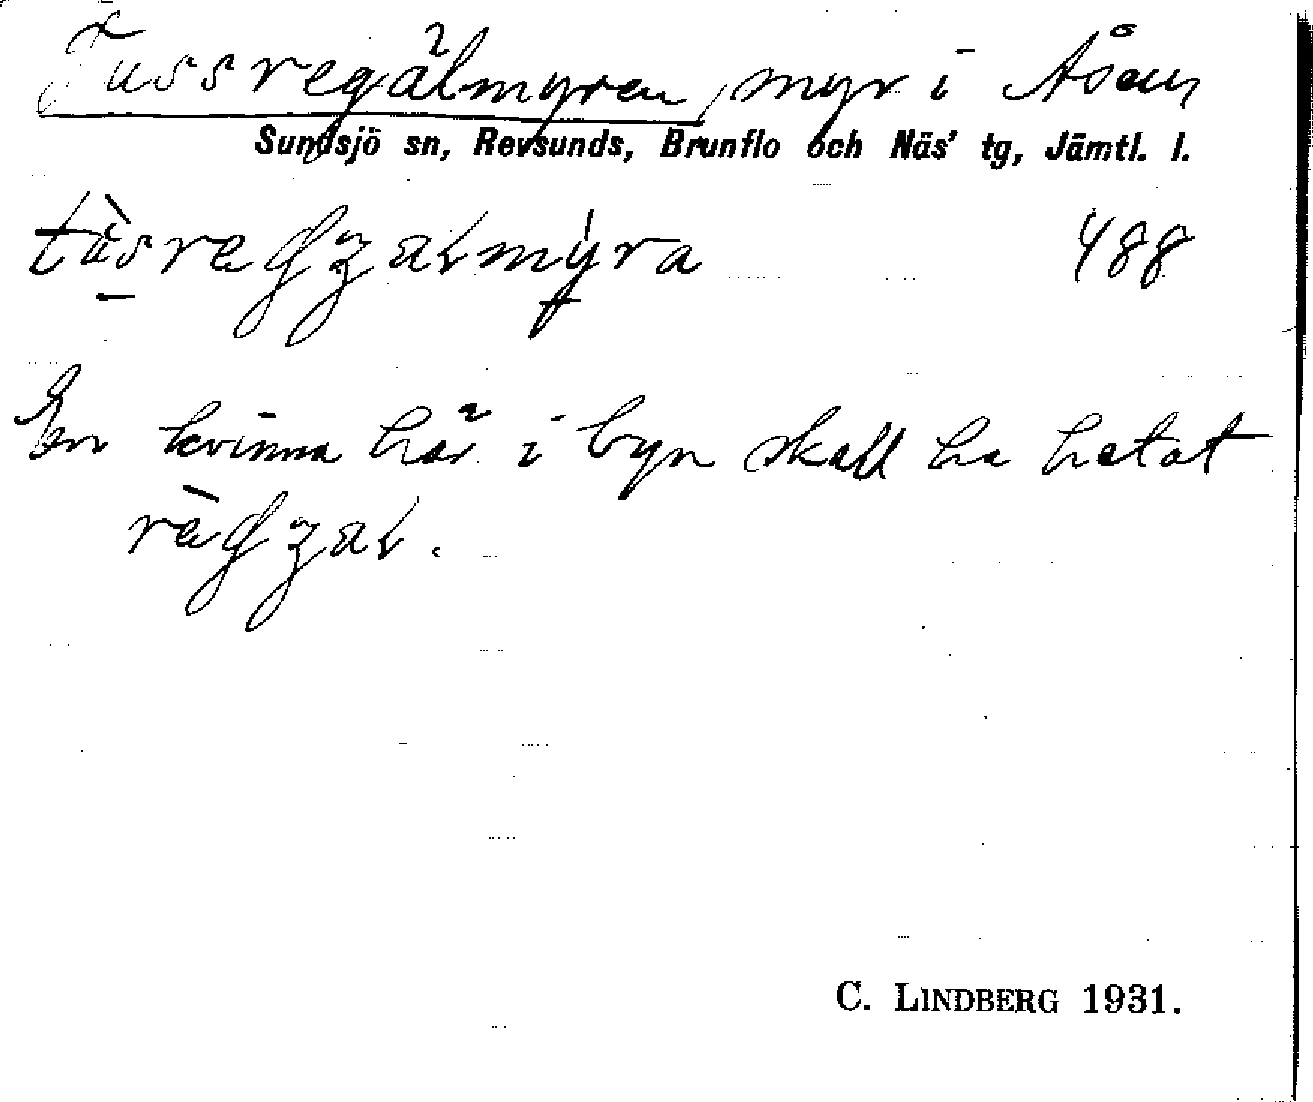 Tussregälmyren, myr i Åsen
Sundsjö sn, Revsunds, Brunflo och Näs' tg, Jämtl. l.
488
En kvinna här i byn skall ha hetat
C. LINDBERG 1931.